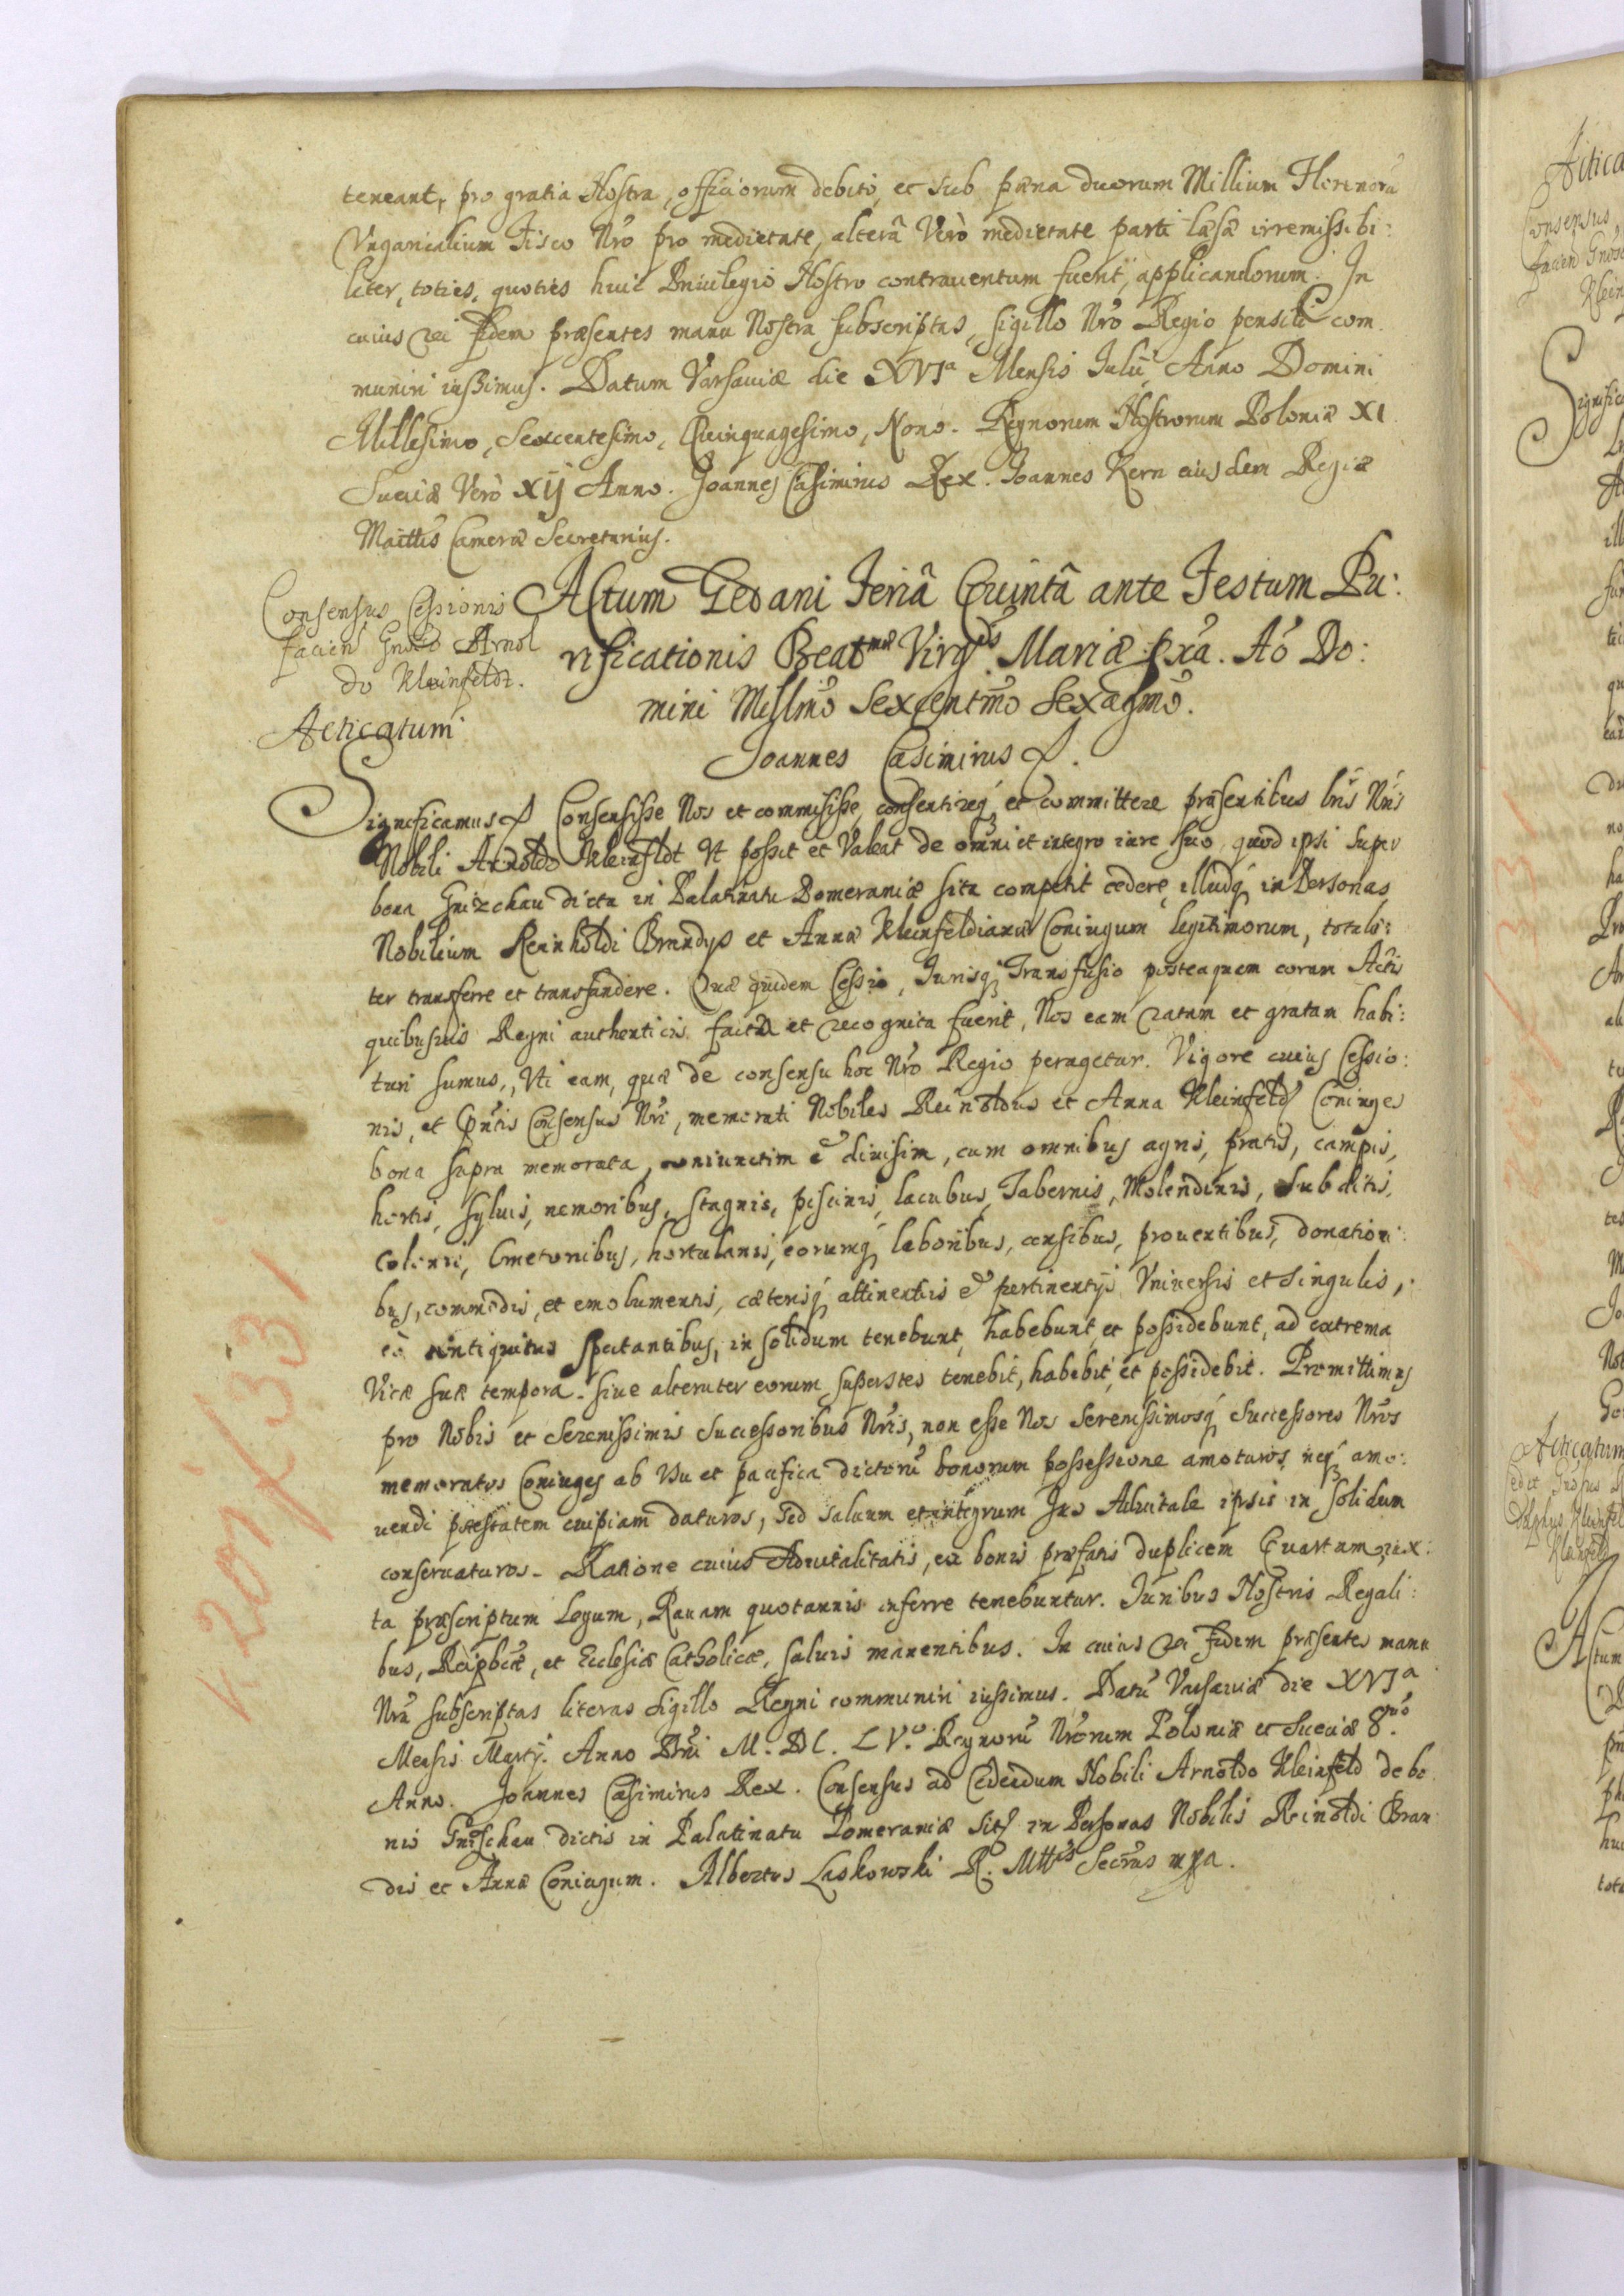 teneant, pro gratia Nostra, officiorum debito, et sub pæna duorum Millium Florenorũ
Vngaricalium Fisco Nr̃o pro medietate, alterâ Verò medietate parti læsæ irremissibi:
liter, toties, quoties huic Priuilegio Nostro contrauentum fuerit, applicandorum. In
cuius rei fidem præsentes manu Nostra subscriptas, sigillo Nr̃o Regio pensili com
muniri iussimus. Datum Varsauiæ die XVIa Mensis Iulij Anno Domini
Millesimo, Sexcentesimo, Quinquagesimo, Nono. Regnorum Nostrorum Poloniæ XI
Sueciæ Verò XIJ Anno. Joannes Casimirus Rex. Joannes Kern eiusdem Regiæ
Maittis Cameræ Secretarius.
Consensus Cessionis
facien Gnoso Arnol
do Kleinfeldt.
Acticatum
Actum Gedani Feriâ Quintâ ante Festum Pu:
rificationis Beatmæ Virgis Mariæ pxa. Aõ Do:
mini Millmõ Sexcentmõ Sexagmõ.
Joannes Casimirus
Significamus Consensisse Nos et commisisse, consentireq́ et committere præsentibus lris Nris
Nobili Arnoldo Kleinfldt Vt possit et Valeat de omni et integro iure suo, quod ipsi super
bona Gnizchau dicta in Palatinatu Pomeraniæ sita competit cedere, illudq́ in Personas
Nobilium Reinholdi Brandys et Annæ Kleinfeldianæ Coniugum legitimorum, totali:
ter transferre et transfundere. Quæ quidem Cessio, Iurisq́ Transfusio posteaquam coram Actis
quibusuis Regni authenticis facta et recognita fuerit, Nos eam ratam et gratam habi:
turi sumus, Vti eam, quæ de consensu hoc Nr̃o Regio peragetur. Vigore cuius Cessio:
nis, et Pñtis Consensus Nri, memorati Nobiles Reinoldus et Anna Kleinfeld Coniuges
bona supra memorata, coniunctim & diuisim, cum omnibus agris, pratis, campis,
hortis, syluis, nemoribus, stagnis, piscinis, lacubus, Tabernis, Molendinis, Subditis,
Colonis, Cmetonibus, hortulanis, eorumq́ laboribus, censibus, prouentibus, donationi:
bus, commodis, et emolumentis, cæterisq́ attinentiis & pertinentijs Vniuersis et singulis,
eò antiquitus spectantibus, in solidum tenebunt, habebunt et possidebunt, ad extrema
Vitæ suæ tempora. siue alteruter eorum superstes tenebit, habebit, et possidebit. Promittimus
pro Nobis et Serenissimis Successoribus Nris, non esse Nos Serenissimosq́ Successores Nros
memoratos Coniuges ab Vsu et pacifica dictorũ bonorum possessione amoturos neq́ amo:
uendi potestatem cuipiam daturos, sed saluum et integrum Jus Aduitale ipsis in solidum
conseruaturos. Ratione cuius Aduitalitatis, ex bonis præfatis duplicem Quartam, iux:
ta præscriptum Legum, Rauam quotannis inferre tenebuntur. Juribus Nostris Regali:
bus, Reipbcæ, et Ecclesiæ Catholicæ, saluis manentibus. In cuius rei fidem præsentes manu
Nrã subscriptas literas sigillo Regni communiri iussimus. Datũ Varsauiæ die XVIa
Mensis Martij. Anno Dñi M. DC. LV.o Regnorũ Nrorum Poloniæ et Sueciæ 8.uo
Anno. Joannes Casimirus Rex. Consensus ad Cedendum Nobili Arnoldo Kleinfeld de bo
nis Gnischau dictis in Palatinatu Pomeraniæ sitis in Personas Nobilis Reinoldi Bran
dis et Annæ Coniugum. Albertus Laskowski R. Mttis Secrus mpa.